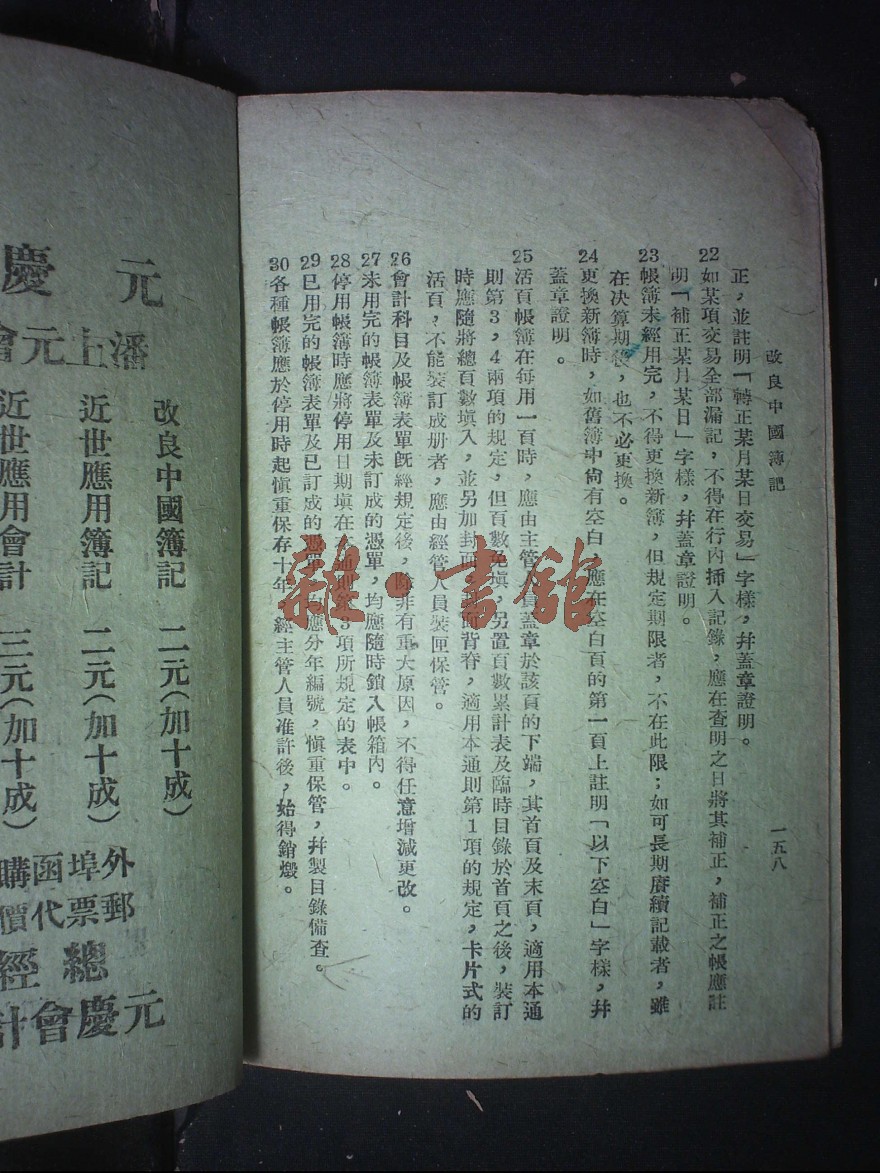 改良中國簿記
一五八
正，並註明「轉正某月某日交易」字樣，幷蓋章證明。
22如某項交易全部漏記，不得在行內揷入記錄，應在查明之日將其補正，補正之帳應註
明「補正某月某日」字樣，幷蓋章證明。
23帳簿未經用完，不得更換新簿，但規定期限者，不在此限；如可長期賡續記載者，雖
在决算期後，也不必更換。
24更換新簿時，如舊簿中尙有空白，應在空白頁的第一頁上註明「以下空白」字樣，幷
蓋章證明。
25活頁帳簿在每用一頁時，應由主管人員蓋章於該頁的下端，其首頁及末頁，適用本通
則第3，4兩項的規定，但頁數免填，另置頁數累計表及臨時目錄於首頁之後，裝訂
時應隨將總頁數填入，並另加封面，面背脊，適用本通則第1項的規定，卡片式的
活頁，不能裝訂成册者，應由經管人員裝匣保管。
26會計科目及帳簿表單旣經規定後，除非有重大原因，不得任意增減更改。
27未用完的帳簿表單及未訂成的憑單，均應隨時鎖入帳箱內。
28停用帳簿時應將停用日期填在本通則第3項所規定的表中。
29已用完的帳簿表單及已訂成的憑單，均應分年編號，愼重保管，幷製目錄備查。
30各種帳簿應於停用時起愼重保存十年，經主管人員准許後，始得銷燬。
雜·書館
元慶
潘士元會
改良中國簿記 二元(加十成)
近世應用簿記 二元(加十成)
近世應用會計 三元(加十成)
外埠函購
郵票代價
總經
元慶會計